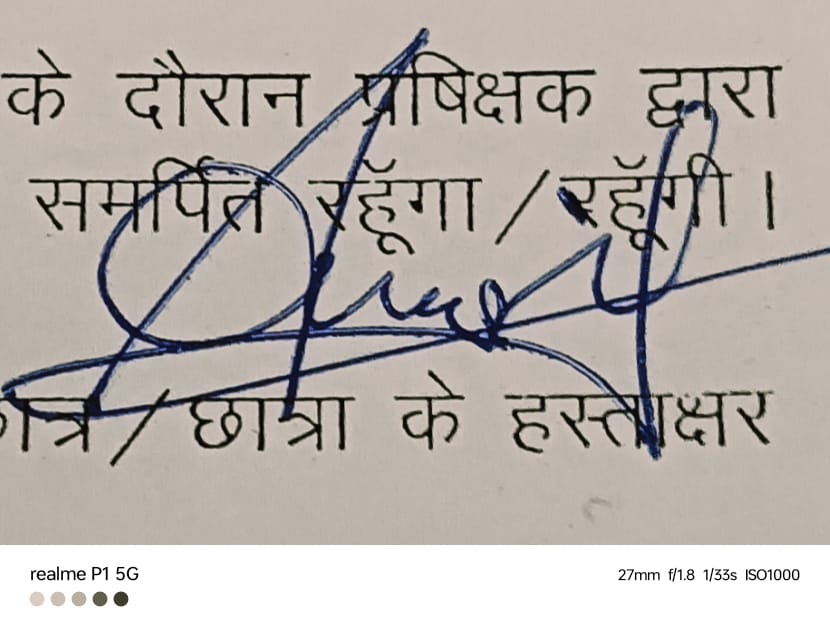 के दौरान प्रषिक्षक द्वारा
समर्पित रहूॅगा / रहूॅगी ।
/ छात्रा के हस्ताक्षर
realme P1 5G
27mm f/1.8 1/33s ISO1000